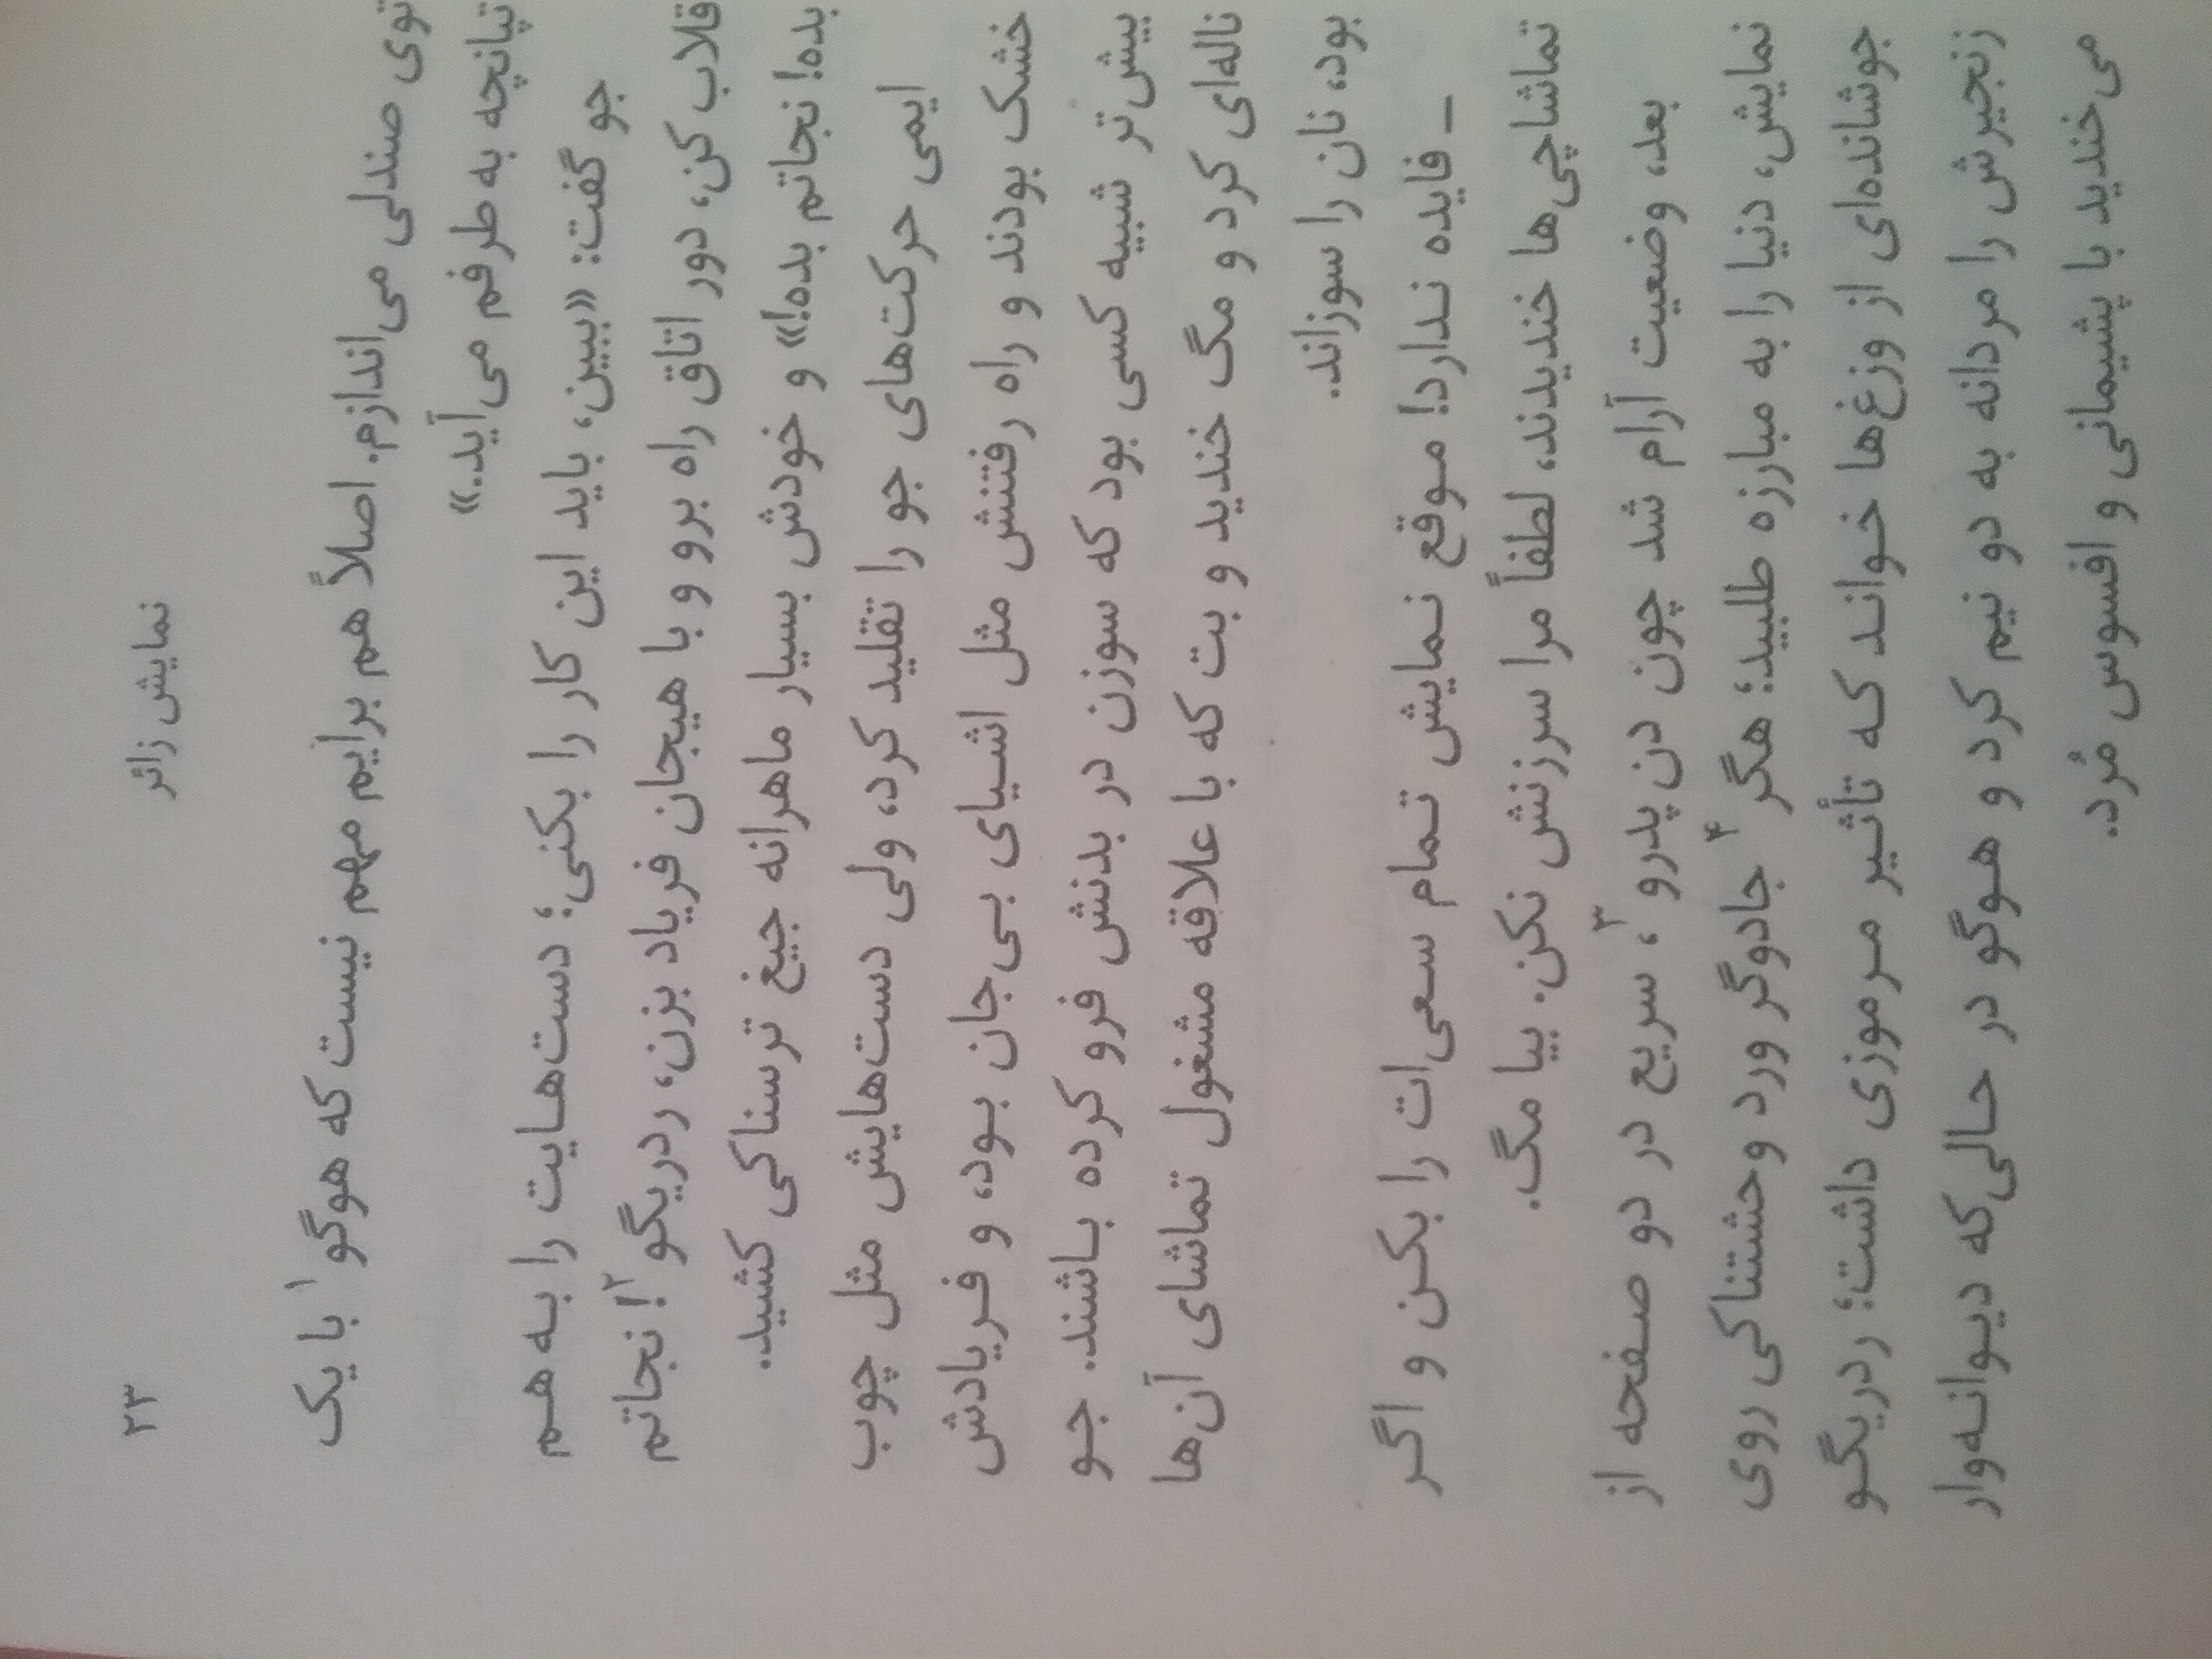 نمایش زائر ۲۳
توی صندلی می‌اندازم. اصلاً هم برایم مهم نیست که هوگو۱ با یک
تپانچه به طرفم می‌آید.»
جو گفت: «ببین، باید این کار را بکنی؛ دست‌هایت را به هم
قلاب کن، دور اتاق راه برو و با هیجان فریاد بزن، ردریگو۲! نجاتم
بده! نجاتم بده!» و خودش بسیار ماهرانه جیغ ترسناکی کشید.
ایمی حرکت‌های جو را تقلید کرد، ولی دست‌هایش مثل چوب
خشک بودند و راه رفتنش مثل اشیای بی‌جان بود، و فریادش
بیش‌تر شبیه کسی بود که سوزن در بدنش فرو کرده باشند. جو
ناله‌ای کرد و مگ خندید و بت که با علاقه مشغول تماشای آن‌ها
بود، نان را سوزاند.
ـ فایده ندارد! موقع نمایش تمام سعی‌ات را بکن و اگر
تماشاچی‌ها خندیدند، لطفاً مرا سرزنش نکن. بیا مگ.
بعد، وضعیت آرام شد چون دن پدرو۳، سریع در دو صفحه از
نمایش، دنیا را به مبارزه طلبید؛ هگر۴ جادوگر ورد وحشتناکی روی
جوشانده‌ای از وزغ‌ها خواند که تأثیر مرموزی داشت؛ ردریگو
زنجیرش را مردانه به دو نیم کرد و هوگو در حالی‌که دیوانه‌وار
می‌خندید با پشیمانی و افسوس مُرد.